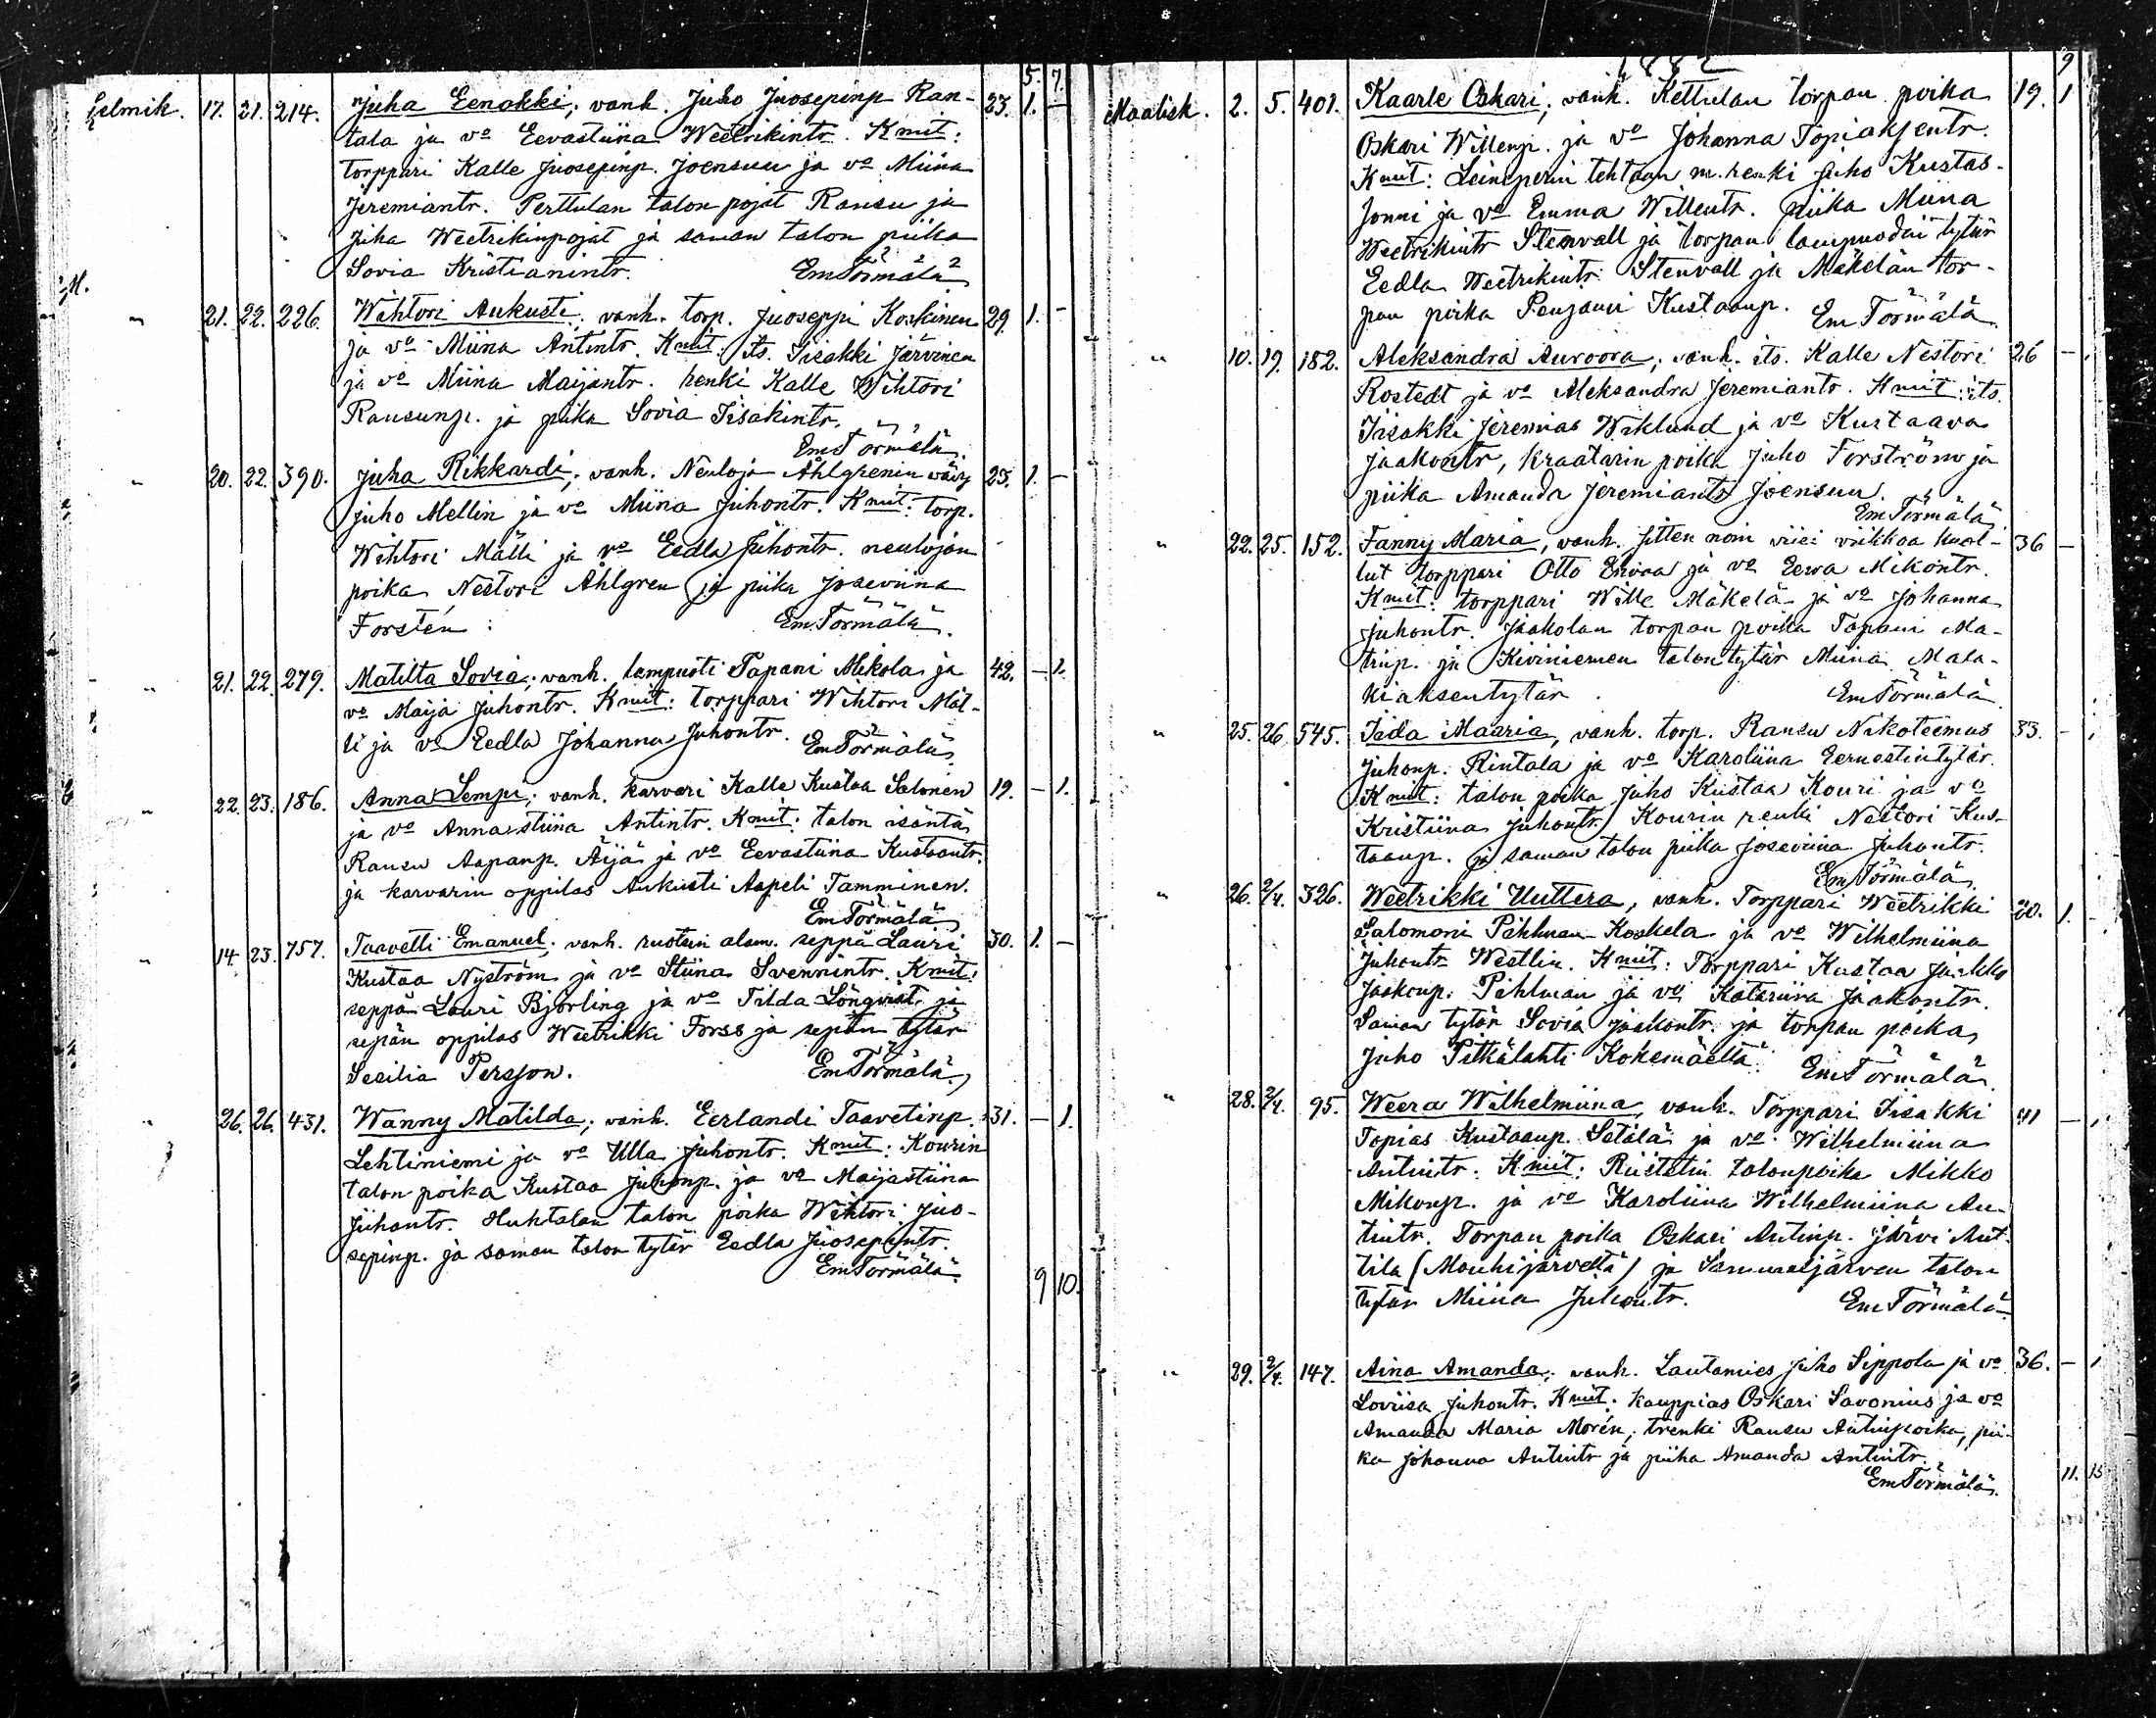 5. 7.
Helmik. 17. 21. 214. Juha Eenokki; vanh. Juho Juosepinp. Ran- 23. 1. -
tala ja vo Eevastiina Weetrikintr. Kmit:
torppari Kalle Juosepinp. Joensuu ja vo Miina
Jeremiantr. Perttulan talon pojat Ransu ja
Juha Weetrikinpojat ja saman talon piika
Sovia Kristianintr. Em Törmälä
" 21. 22. 226. Wihtori Aukusti; vanh. torp. Juoseppi Koskinen 29. 1. -
ja vo Miina Antintr. Kmit: its. Iisakki Järvinen
ja vo Miina Maijantr. henki Kalle Wihtori
Ransunp. ja piika Sovia Iisakintr.
Em Törmälä.
" 20. 22. 390. Juha Rikkardi; vanh. Neuloja Åhlgrenin vävy 23. 1. -
Juho Mellin ja vo Miina Juhontr. Kmit: torp.
Wihtori Mälli ja vo Eedla Juhontr. neulojan
poika Nestori Åhlgren ja piika Joseviina
Forstén. Em Törmälä.
" 21. 22. 279. Matilta Sovia; vanh. lampuoti Tapani Mikola ja 42. - 1.
vo Maija Juhontr. Kmit: torppari Wihtori Mäl-
li ja vo Eedla Johanna Juhontr. Em Törmälä
" 22. 23. 186. Anna Lempi; vanh. karvari Kalle Kustaa Salonen 19. - 1.
ja vo Annastiina Antintr. Kmit: talon isäntä
Ransu Aapanp. Äijä ja vo Eevastiina Kustaantr.
ja karvarin oppilas Aukusti Aapeli Tamminen.
Em Törmälä
" 14. 23. 757. Taavetti Emanuel; vanh. ruotsin alam. seppä Lauri 30. 1. -
Kustaa Nyström ja vo Stiina Svennintr. Kmit:
seppä Lauri Björling ja vo Tilda Lönqvist ja
sepän oppilas Weetrikki Forss ja sepän tytär
Sesilia Persson. Em Törmälä.
" 26. 26. 431. Wanny Matilda; vanh. Eerlandi Taavetinp. 31. - 1.
Lehtiniemi ja vo Ulla Juhontr. Kmit: Kourin
talon poika Kustaa Juhonp. ja vo Maijastiina
Juhontr. Huhtalan talon poika Wihtori Juo-
sepinp. ja saman talon tytär Eedla Juosepintr.
Em Törmälä
9 10.
1882 9
Maalisk. 2. 5. 401. Kaarle Oskari; vanh. Kettulan torpan poika 19. 1
Oskari Willenp. ja vo Johanna Topiaksentr.
Kmit: Leineperin tehtaan m. renki Juho Kustas-
Jonni ja vo Emma Willentr. piika Miina
Weetrikintr Stenvall ja torpan lampuodin tytär
Eedla Weetrikintr. Stenvall ja Mäkelän tor-
pan poika Penjami Kustaanp. Em Törmälä.
" 10. 19. 182. Aleksandra Auroora; vanh. its. Kalle Nestori 26 -
Rostedt ja vo Aleksandra Jeremiantr. Kmit: its.
Iisakki Jeremias Wiklund ja vo Kustaava
Jaakontr, kraatarin poika Juho Forström ja
piika Amanda Jeremiantr Joensuu.
Em Törmälä
" 22. 25. 152. Fanny Maria, vanh. sitten noin viisi viikkoa kuol- 36 -
lut torppari Otto ja vo Eeva Mikontr.
Kmit: torppari Wille Mäkelä ja vo Johanna
Juhontr. Jaakolan torpan poika Tapani Ma-
tinp. ja Kiviniemen talon tytär Miina Mala-
kiaksentytär. Em Törmälä
" 25. 26. 545. Iida Maaria, vanh. torp. Ransu Nikoteemus 33. -
Juhonp. Rintala ja vo Karoliina Eernestintytär.
Kmit: talon poika Juho Kustaa Kouri ja vo
Kristiina Juhontr. Kourin renki Nestori Kus-
taanp. ja saman talon piika Joseviina Juhontr.
Em Törmälä
" 26. 2/4. 326. Weetrikki Uuttera, vanh. Torppari Weetrikki 20. 1. -
Salomoni Pihlman Koskela ja vo Wilhelmiina
Juhontr Westlin. Kmit: Torppari Kustaa Jaakko
Jaakonp. Pihlman ja vo Katariina Jaakontr.
Saman tytär Sovia Jaakontr. ja torpan poika
Juho Pitkälahti Kokemäeltä. Em Törmälä.
" 28. 2/4. 95. Weera Wilhelmiina, vanh. Torppari Iisakki 41 -
Topias Kustaanp. Setälä ja vo Wilhelmiina
Antintr. Kmit: Riistetin talonpoika Mikko
Mikonp. ja vo Karoliina Wilhelmiina An-
tintr. Torpan poika Oskari Antinp. Järvi Ant-
tila (Mouhijärveltä) ja Sammaljärven talon
tytär Miina Juhontr. Em Törmälä.
" 29. 2/4. 147. Aina Amanda; vanh. Lautamies Juho Sippola ja vo 36. - 1
Loviisa Juhontr. Kmit: Kauppias Oskari Savonius ja vo
Amanda Maria Morén, trenki Ransu Antinpoika, pii-
ka Johanna Antintr ja piika Amanda Antintr.
Em Törmälä.
11. 13